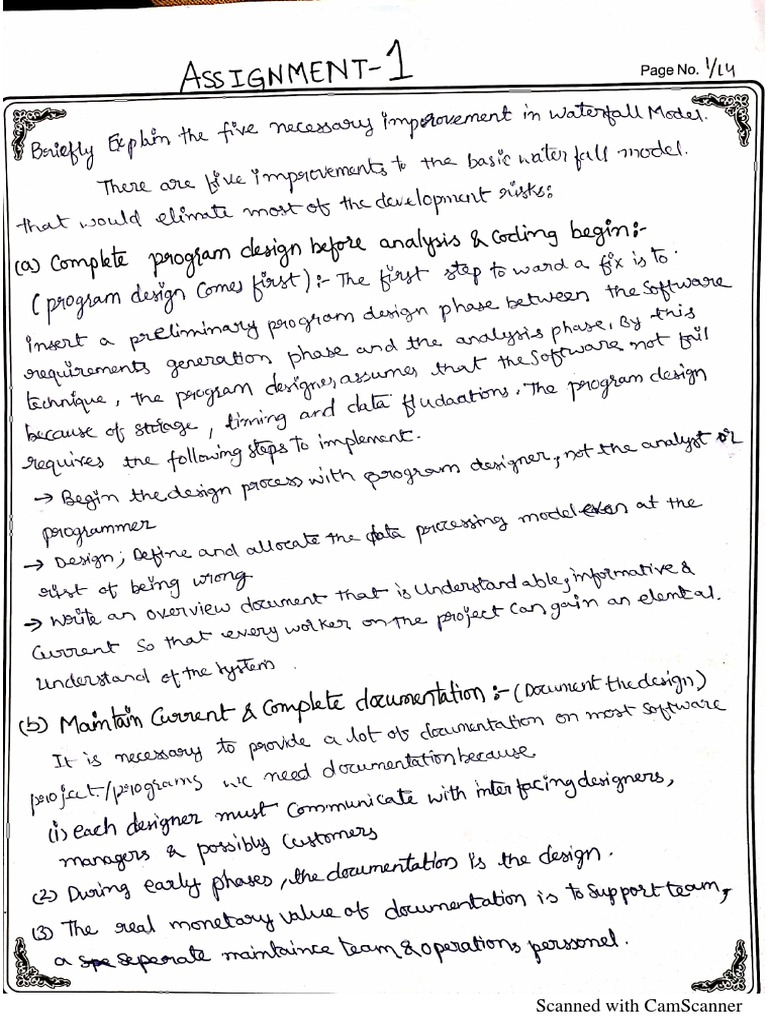 ASSIGNMENT-1
Page No. 1/14
Briefly Explain the five necessary improvement in waterfall Model.
There are five improvements to the basic water fall model.
that would elimate most of the development risks:
(a) Complete program design before analysis & Coding begin:-
(program design Comes first):- The first step to ward a fix is to
insert a preliminary program design phase between the Software
requirements generation phase and the analysis phase, By this
technique, the program designer, assumes that the Software not fail
because of storage, timing and data fludaations. The program design
requires the following steps to implement.
→ Begin the design process with program designer, not the analyst or
programmer
→ Design; Define and allocate the data processing model even at the
rist of being wrong
→ Write an overview document that is Understandable, informative &
Current So that every worker on the project Can gain an elemtal.
Understand of the System.
(b) Maintain Current & Complete documentation:- (Document the design)
It is necessary to provide a lot of documentation on most software
project/programs we need documentation because
(1) each designer must Communicate with interfacing designers,
managers & possibly Customers
(2) During early phases, the documentation is the design.
(3) The real monetary value of documentation is to Support team,
a seperate maintaince team & operations perssonel.
Scanned with CamScanner